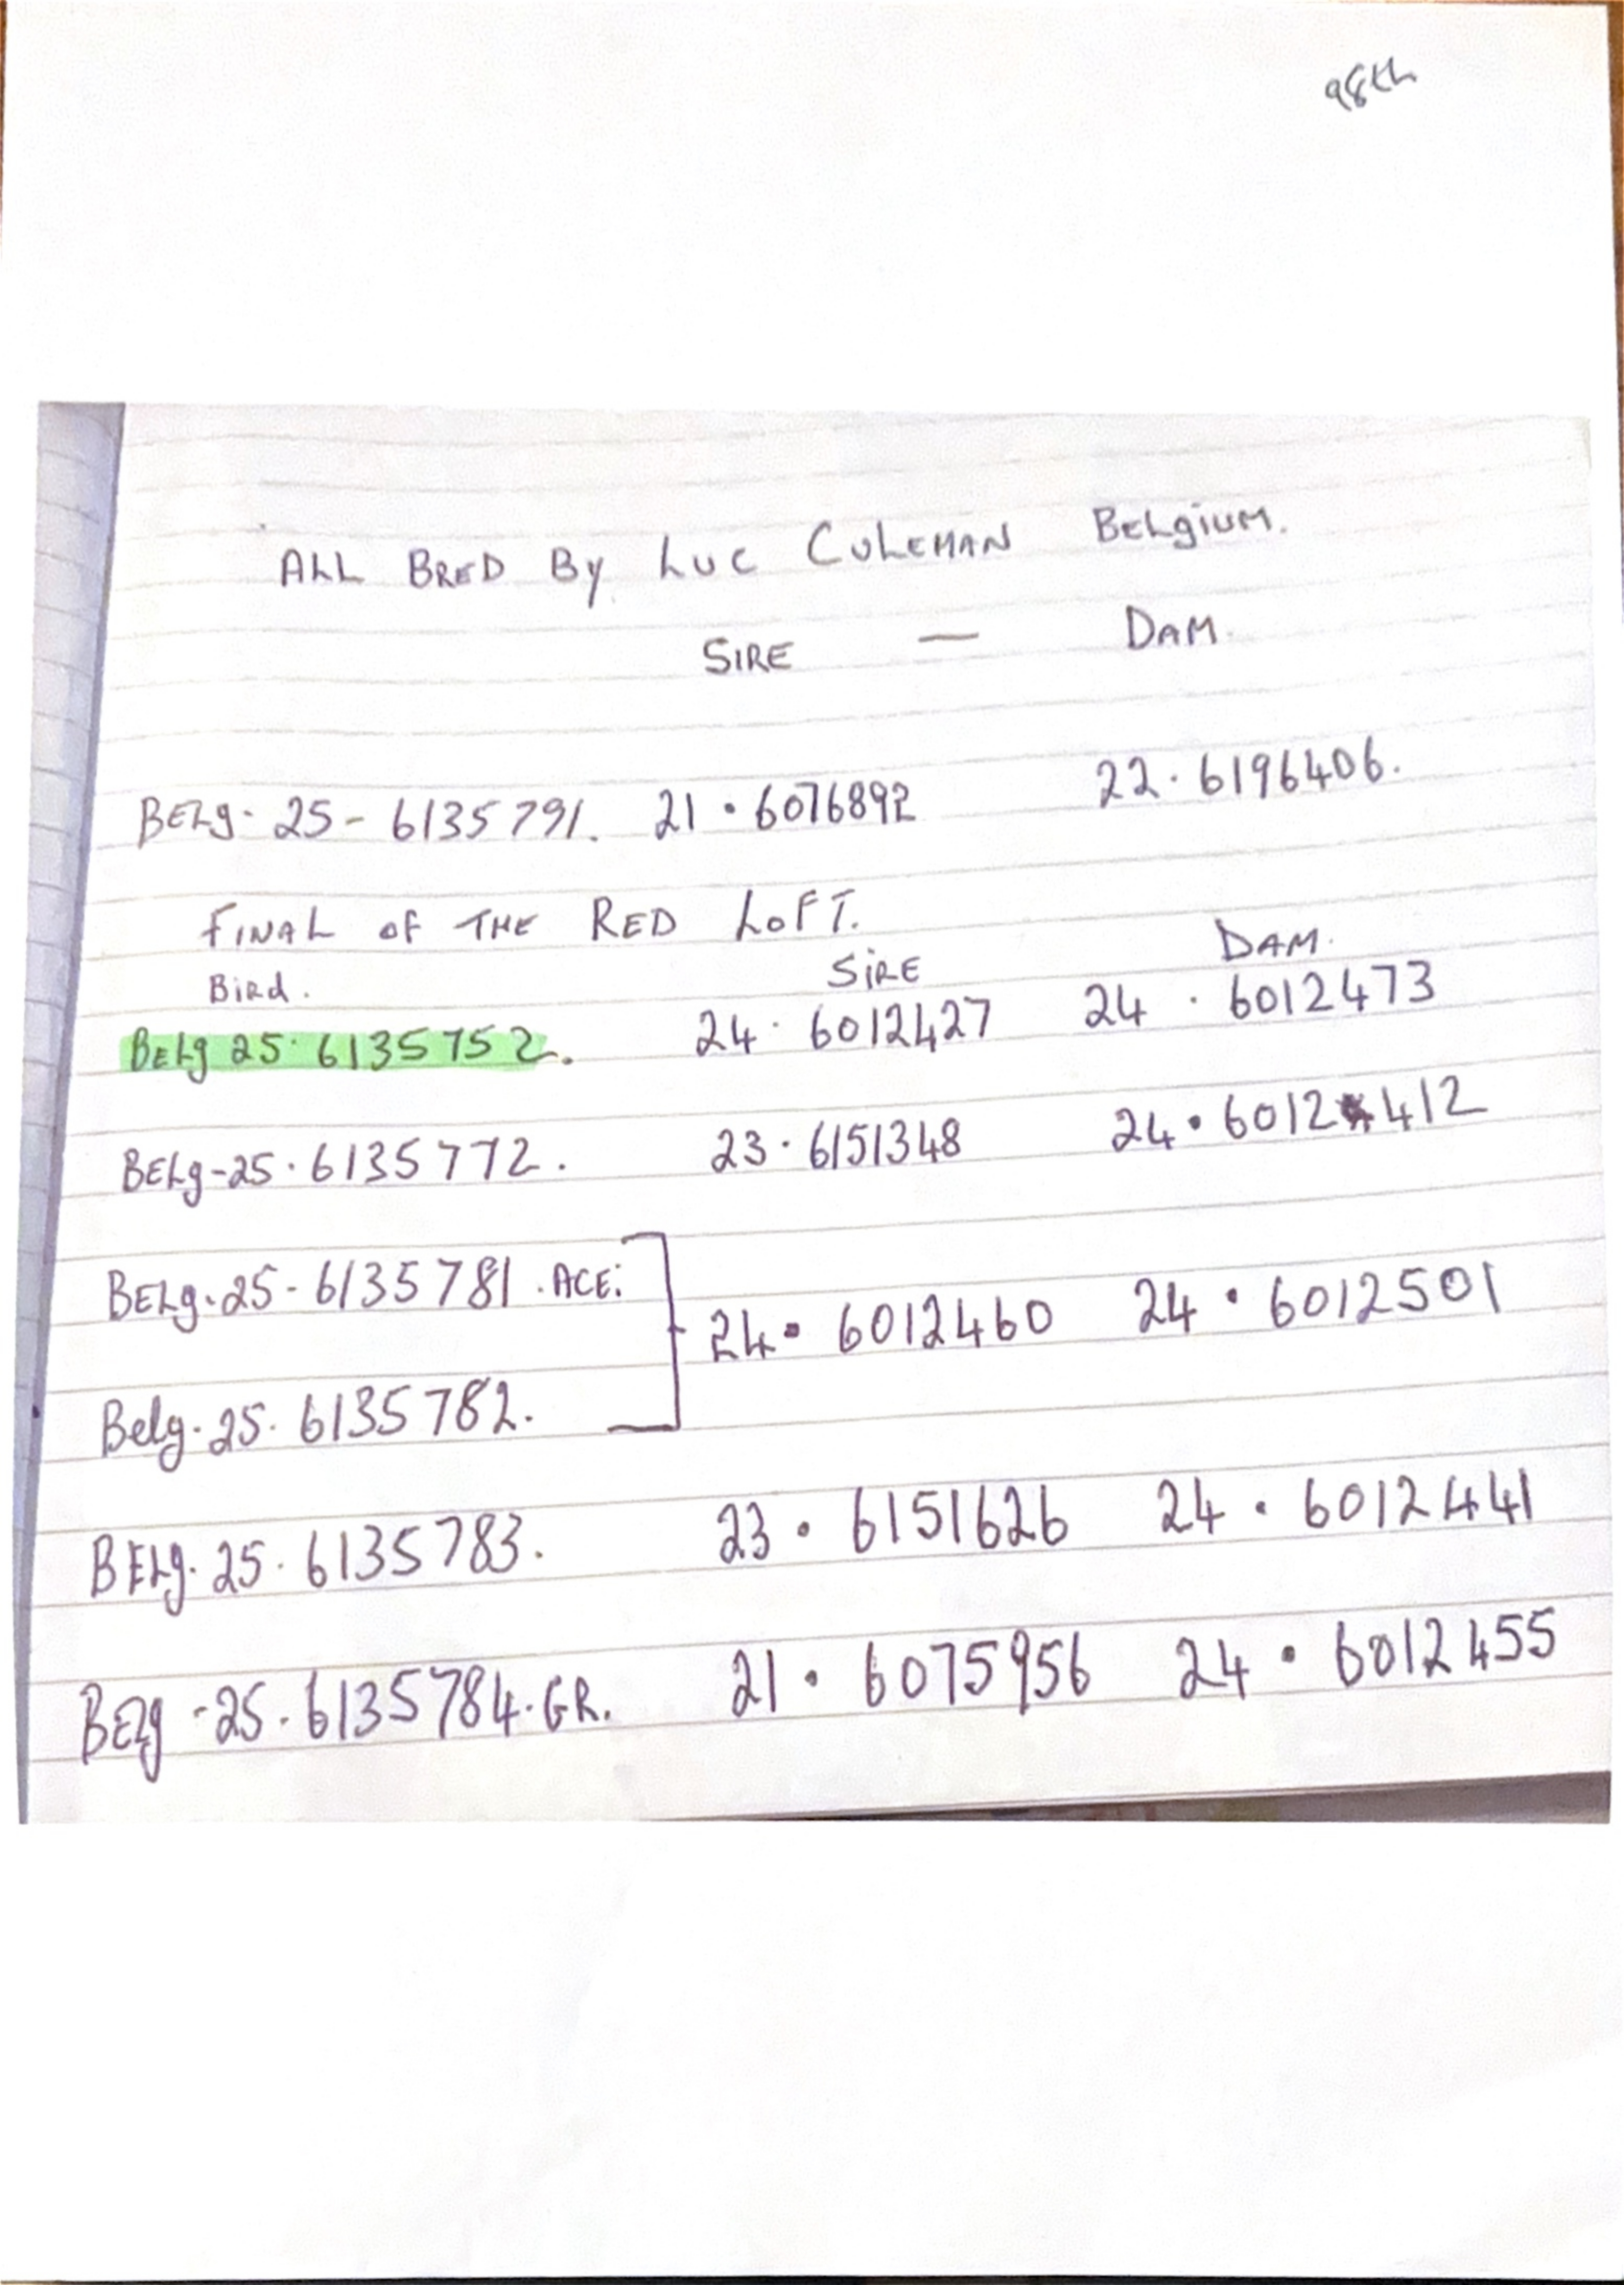 98th
ALL BRED By LUC CULEMAN BELgiUM.
SIRE — DAM.
BELg- 25 - 6135791. 21 • 6076892 22 · 6196406.
FINAL OF THE RED LOFT.
Bird. SiRE DAM.
BELg 25· 6135752. 24 · 6012427 24 · 6012473
BELg-25·6135772. 23 · 6151348 24 • 6012412
BELg·25-6135781 . ACE: 24 • 6012460 24 • 6012501
Belg·25· 6135782.
BELg· 25· 6135783. 23 • 6151626 24 • 6012441
BELg -25·6135784·GR. 21 • 6075956 24 • 6012455